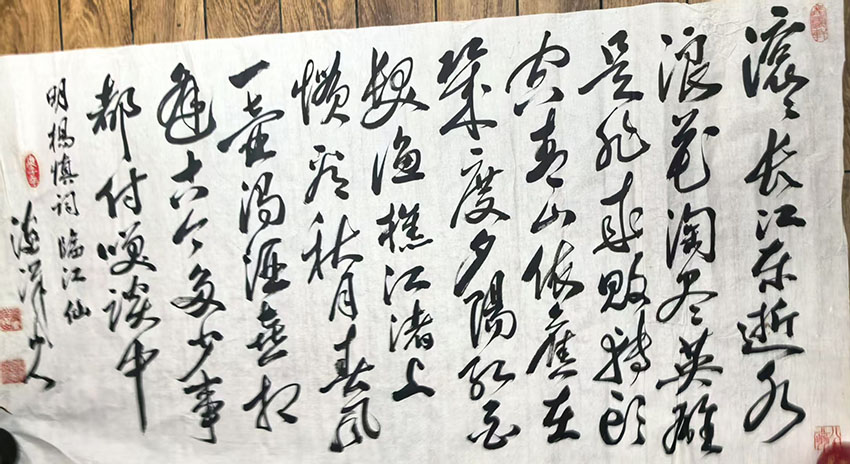 滚〻长江东逝水
浪花淘尽英雄
是非成败转头
空青山依舊在
幾度夕陽红白
髮渔樵江渚上
惯看秋月春风
一壶浊酒喜相
逢古今多少事
都付笑谈中
明楊慎词临江仙